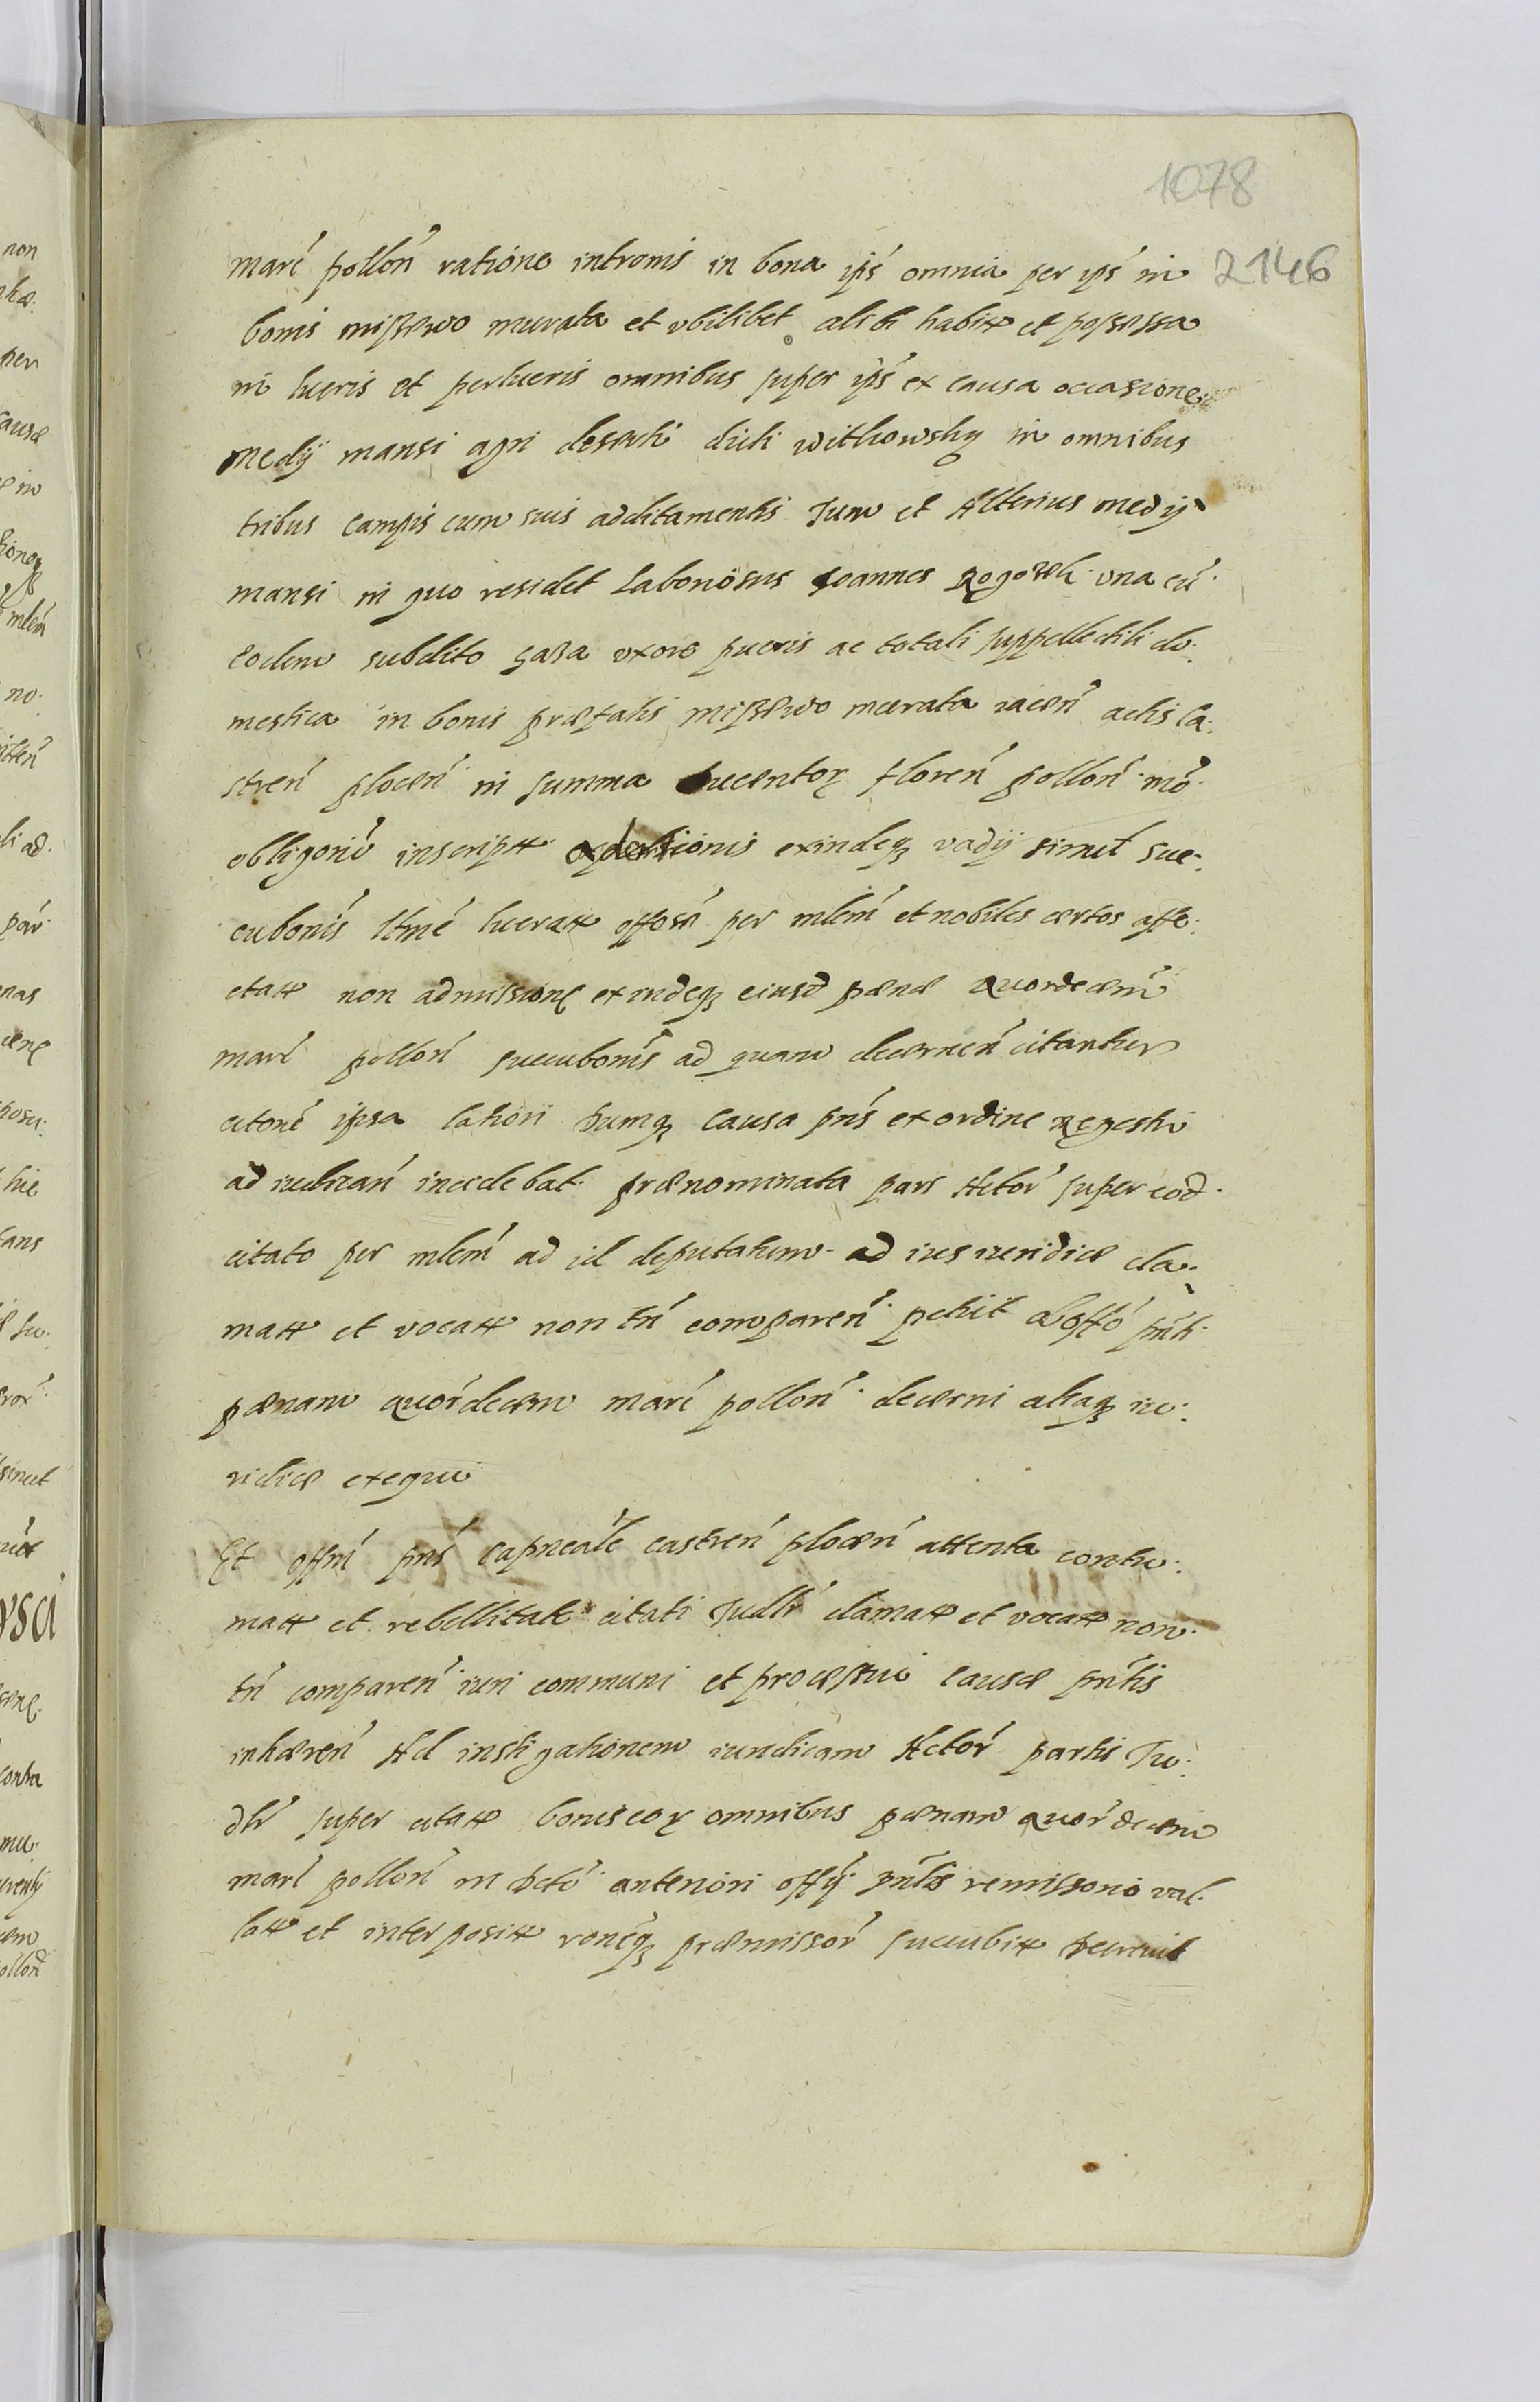 1078
2146
marć pollōń ratione intromis in bona ipś omnia per ipś in
bonis miszewo murata et vbilibet alibi habitt et possessa
in lucris et perlucris omnibus super ipś ex causa occasione
medij mansi agri deserti dicti withowsky in omnibus
tribus campis cum suis additamentis Tum et Alterius medij
mansi in quo residet Laboriosus Joannes Rogowsk una cū
eodem subdito gaza vxore pueris ac totali suppellectili do:
mestica in bonis præfatis miszewo murata iaceń actis Ca:
streń ploceń in summa Ducentor floreń polloń mo
obligorié inscriptt exdentionis exindeq vadij simul suc:
cubonis Itmé lucratt offosé per mlem et nobiles certos affe:
ctatt non admissione exindeq eiusd pænæ quordecem
marć polloń succubonis ad quam decerneń citantur
citoné ipsa latiori Dumq causa pńs ex ordine Regestri
ad iudicań incidebat prænominata pars Actoř super eod
citato per mlem ad id deputatum ad ius iuridice cla:
matt et vocatt non tń compareń petiit ab offō pńti
pænam quordecem marć polloń decerni aliaq iu:
ridice exequi
Et offm pńs capneale castreń ploceń attenta contu:
matt et rebellitate citati Judlr clamatt et vocatt non
tń compareń iuri communi et processui causæ pńtis
inhæreń Ad instigationem iuridicam Actoř partis Ju:
dlr super citatt boniscor omnibus pænam quordecem
marć polloń in Dcto anteriori offij pńtis remissorio val:
latt et interpositt ronéq præmissoř succubitt decreuit